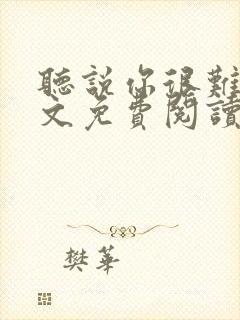 聽説你很難
文免費閱讀
樊華